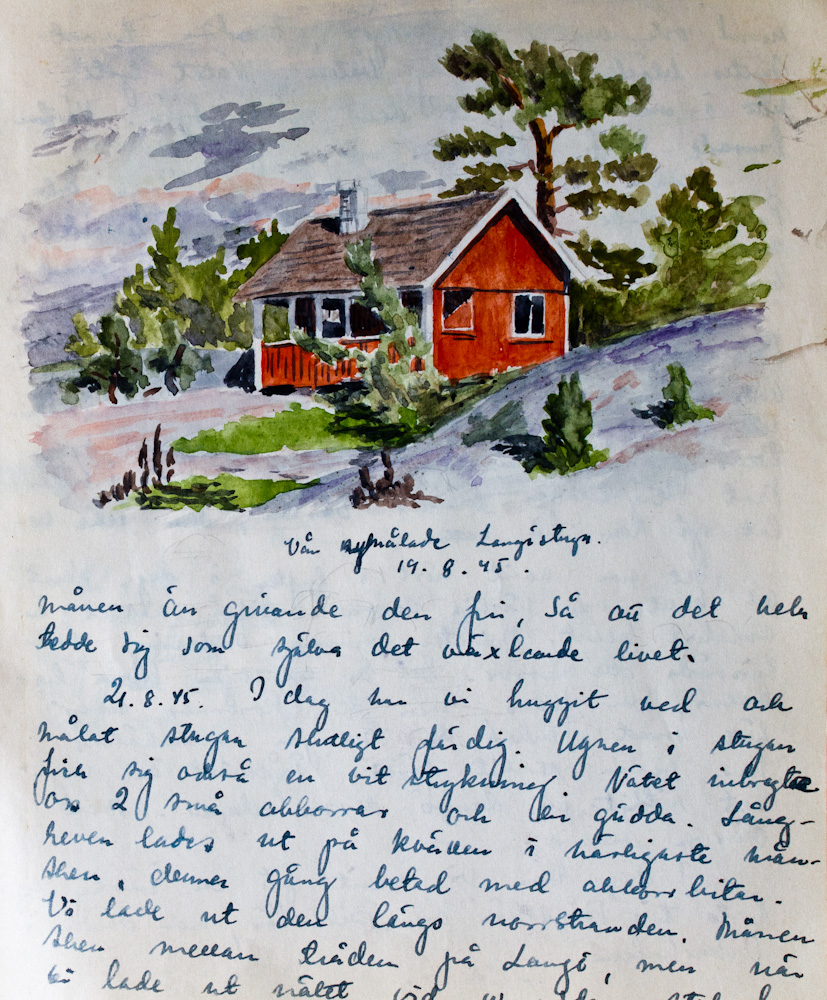 Vår nymålade Långistuga.
19.8.45.
månen än givande den fri, så att det hela
tedde sig som själva det växlande livet.
21.8.45. I dag har vi huggit ved och
målat stugan slutligt färdig. Ugnen i stugan
fick sig också en vit strykning. Nätet inbragte
oss 2 små abborrar och en gädda. Lång-
reven lades ut på kvällen i härligaste mån-
sken, denna gång betad med abborrbitar.
Vi lade ut den längs norrstranden. Månen
sken mellan träden på Långö, men när
vi lade ut nätet